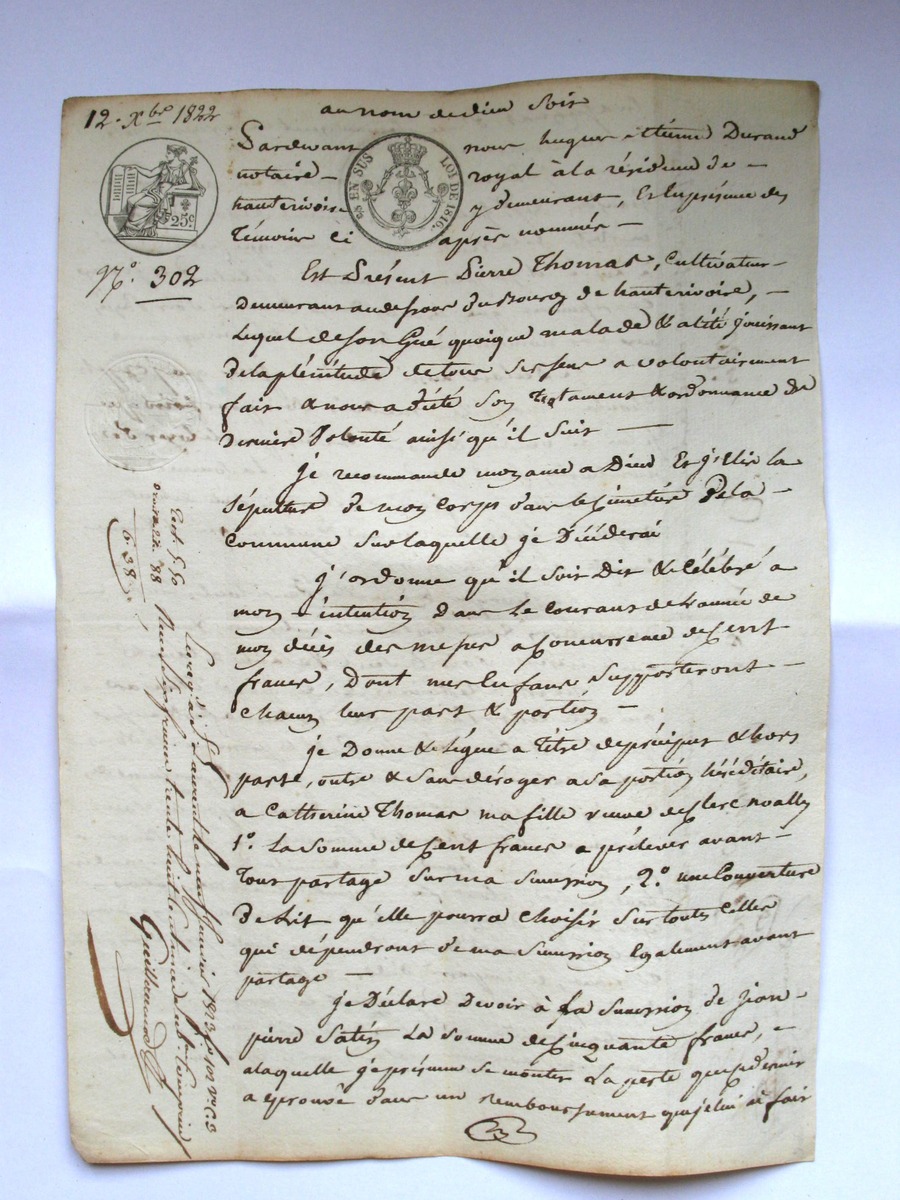 12. Xbre 1822
au nom de dieu soit
25c.
EN SUS LOI DE 1816.
Pardevant nous hugues etienne Durand
notaire royal à la résidence de
hauterivoire y demeurant, et en présence des
témoins ci après nommés
N.° 302
Est Présent Pierre Thomas, Cultivateur
Demeurant au dessous du Bourg de hauterivoire,
Lequel de son Gré quoique malade & alité jouissant
de la plénitude de tous ses sens a volontairement
fait & nous a dicté son testament & ordonnance de
Dernière Volonté ainsi qu'il suit
je recommande mon ame a Dieu Et j'Elis la
Sépulture de mon Corps dans le Cimetière de la
Commune sur laquelle je Décéderai
j'ordonne qu'il soit Dit & Célébré a
mon intention dans Le Courant de l'année de
mon décès des messes a Concurrence de Cent
francs, Dont mes Enfans supporteront
chacun leur part & portion
je Donne & Légue a titre de préciput & hors
part, outre & sans déroger a sa portion héréditaire,
a Catherine Thomas ma fille veuve de
1.° La Somme de Cent francs a prélever avant
tout partage sur ma succession, 2.° une Couverture
de Lit qu'elle pourra Choisir sur toutes Celles
qui dépendront de ma succession également avant
partage
je Déclare Devoir à la succession de Jean
pierre La Somme de Cinquante francs,
a laquelle je présume se monter La perte que ce dernier
a éprouvé dans un remboursement que je lui ai fait
6-38
Enregistré à St Laurent le neuf janvier 1823 fo 102 Vo C. 3
Reçu six francs trente huit centimes dixième compris
Guillemard